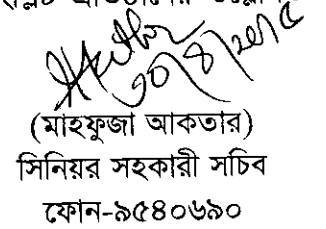 ৩০/৪/২০১৫
(মাহফুজা আকতার)
সিনিয়র সহকারী সচিব
ফোন-৯৫৪০৬৯০